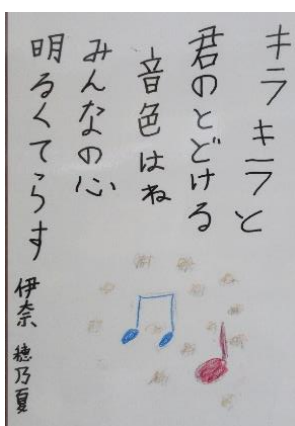 キラキラと
君のとどける
音色はね
みんなの心
明るくてらす
伊奈 穂乃夏